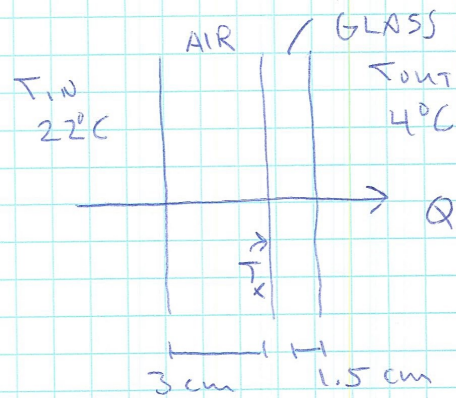 AIR
GLASS
TIN
22°C
TOUT
4°C
Q
Tx
3 cm
1.5 cm